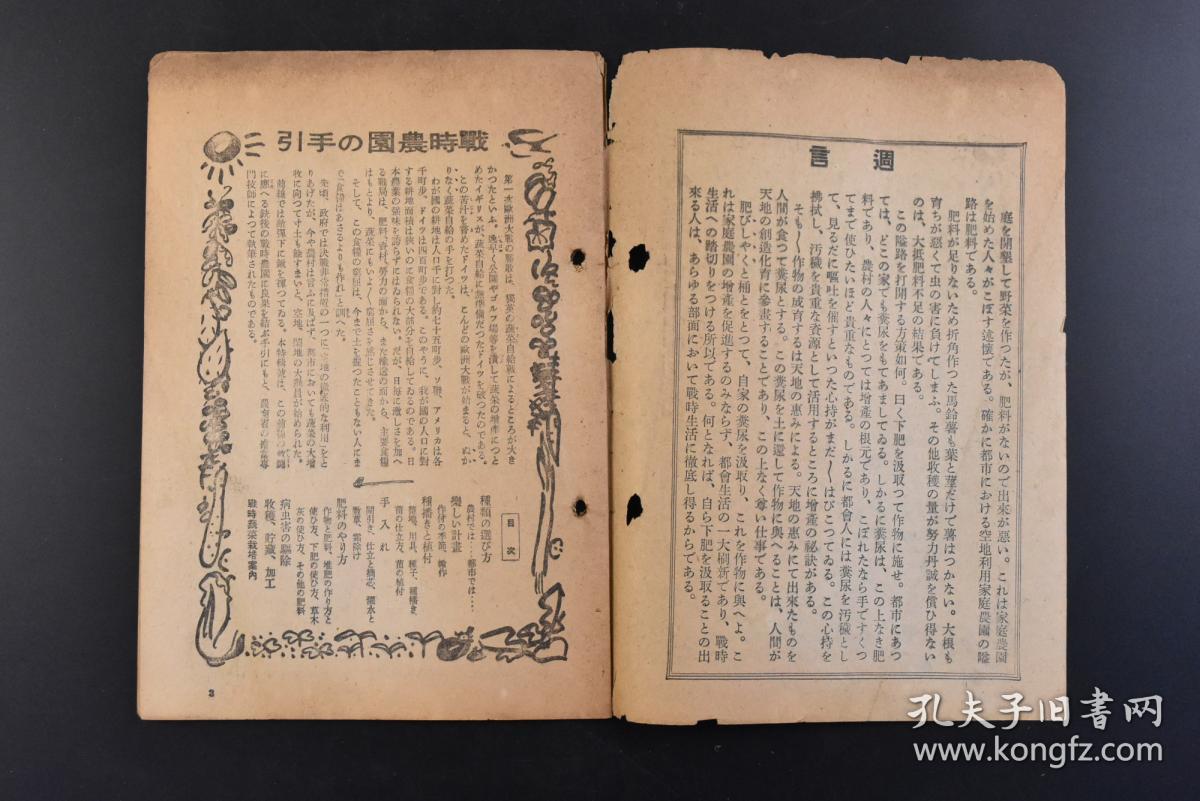 週言
庭を開墾して野菜を作つたが、肥料がないので出来が悪い。これは家庭農園
を始めた人々がこぼす述懷である。確かに都市における空地利用家庭農園の隘
路は肥料である。
肥料が足りないため折角作つた馬鈴薯も葉と莖だけで薯はつかない。大根も
育ちが惡くて虫の害に負けてしまふ。その他收穫の量が努力丹誠を償ひ得ない
のは、大抵肥料不足の結果である。
この隘路を打開する方策如何。曰く下肥を汲取つて作物に施せ。都市にあつ
ては、どこの家でも糞尿をもてあましてゐる。しかるに糞尿は、この上なき肥
料であり、農村の人々にとつては增產の根元であり、こぼれたなら手ですくつ
てまで使ひたいほど貴重なものである。しかるに都會人には糞尿を汚穢とし
て、見るだに嘔吐を催すといつた心持がまだ〳〵はびこつてゐる。この心持を
拂拭し、汚穢を貴重な資源として活用するところに增產の祕訣がある。
そも〳〵作物の成育するは天地の惠みによる。天地の惠みにて出來たものを
人間が食つて糞尿とする。この糞尿を土に還して作物に與へることは、人間が
天地の創造化育に參畫することであり、この上なく尊い仕事である。
肥びしやくと桶とをとつて、自家の糞尿を汲取り、これを作物に與へよ。こ
れは家庭農園の增產を促進するのみならず、都會生活の一大刷新であり、戰時
生活への踏切りをつける所以である。何となれば、自ら下肥を汲取ることの出
來る人は、あらゆる部面において戰時生活に徹底し得るからである。
戰時農園の手引
第一次歐洲大戰の勝敗は、獨英の蔬菜自給戰によるところが大き
かつたといふ。逸早く公園やゴルフ場等を潰して蔬菜の增產につと
めたイギリスが、蔬菜自給に無準備だつたドイツを破つたのである。
この苦汁を嘗めたドイツは、こんどの歐洲大戰が始まると、ぬか
りなく蔬菜自給の手を打つた。
わが國の耕地は人口千に對し約七十五町步、ソ聯、アメリカは各
千町步、ドイツは四百町步である。このやうに、我が國の人口に對
する耕地面積は狹いのに食糧の大部分を自給してゐるのである。日
本農業の强味を誇らずにはゐられない。だが、日每に激しさを加へ
る戰局は、肥料、資材、勞力の面から、また輸送の面から、主要食糧
はもとより、蔬菜にもいよ〳〵窮屈を感じさせてきた。
そして、この食糧の窮屈は、今まで土を握つたこともない人にま
で「食糧はあさるよりも作れ」と訓へた。
先頃、政府では決戰非常措置の一つに「空地の徹底的な利用」をと
りあげたが、今や農村は言ふに及ばず、都市においても蔬菜の大增
收に向つて寸土も餘すまいと、空地、閑地の大動員が始められた。
前線では敵彈下に鍬を揮つてゐる。本特輯號は、この
に應へる銃後の戰時農園に良果を結ぶ手引にもと、農商省の
門技師によつて執筆されたものである。
目次
種類の選び方
農村では……都市では……
樂しい計畫
作付の季節、輪作
種播きと植付
整地、用具、種子、種播き、
苗の仕立方、苗の植付
手入れ
間引き、仕立と摘芯、灌水と
敷草、霜除け
肥料のやり方
作物と肥料、堆肥の作り方と
使ひ方、下肥の使ひ方、草木
灰の使ひ方、その他の肥料
病虫害の驅除
收穫、貯藏、加工
戰時蔬菜栽培案內
3
孔夫子旧书网
www.kongfz.com